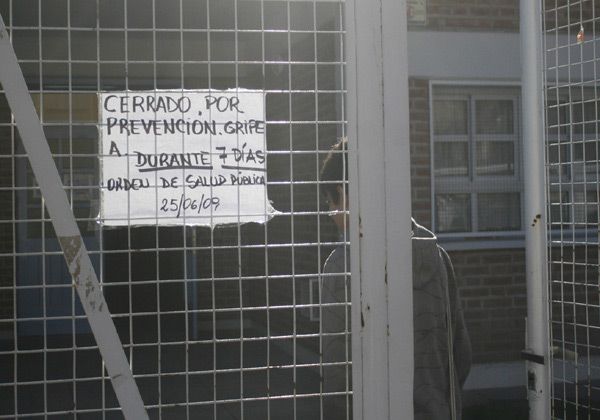 CERRADO. POR
PREVENCIÓN. GRIPE
A DURANTE 7 DÍAS
ORDEN DE SALUD PÚBLICA
25/06/09